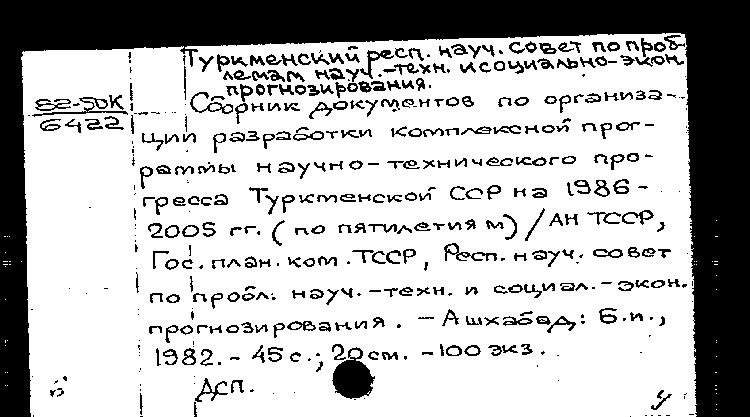 Туркменский респ. науч. совет по проб-
лемам науч.-техн. и социально-экон.
прогнозирования.
82-5ДК
6422
Сборник документов по организа-
ции разработки комплексной прог-
раммы научно-технического про-
гресса Туркменской ССР на 1986-
2005 гг. (по пятилетиям) / АН ТССР,
Гос. план. ком. ТССР, Респ. науч. совет
по пробл. науч.-техн. и социал.-экон.
прогнозирования. - Ашхабад: Б.и.,
1982. - 45 с.; 20 см. - 100 экз.
ДСП.